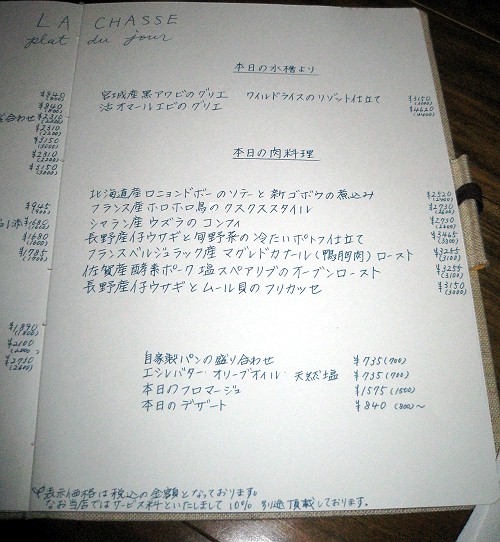 LA CHASSE
plat du jour
¥840
¥840
合わせ ¥2310
¥2310
¥3150
¥2310
¥3150
¥945
¥1680
¥1785
¥1890
¥2100
¥2730
本日の水槽より
宮城産黒アワビのグリエ ワイルドライスのリゾット仕立て ¥3150 (3000)
活オマールエビのグリエ ¥4620 (4400)
本日の肉料理
北海道産ロニョンドボーのソテーと新ゴボウの煮込み ¥2520 (2400)
フランス産ホロホロ鳥のクスクススタイル ¥2730 (2600)
シャラン産ウズラのコンフィ ¥2730 (2600)
長野産仔ウサギと旬野菜の冷たいポトフ仕立て ¥3465 (3300)
フランスベルジュラック産マグレドカナール(鴨胸肉)ロースト ¥3255 (3100)
佐賀産酵素ポーク塩スペアリブのオーブンロースト ¥3255 (3100)
長野産仔ウサギとムール貝のフリカッセ ¥3150 (3000)
自家製パンの盛り合わせ ¥735 (700)
エシレバター・オリーブオイル・天然塩 ¥735 (700)
本日のフロマージュ ¥1575 (1500)
本日のデザート ¥840 (800)〜
表示価格は税込の金額となっております。
なお当店ではサービス料といたしまして10% 別途頂戴しております。